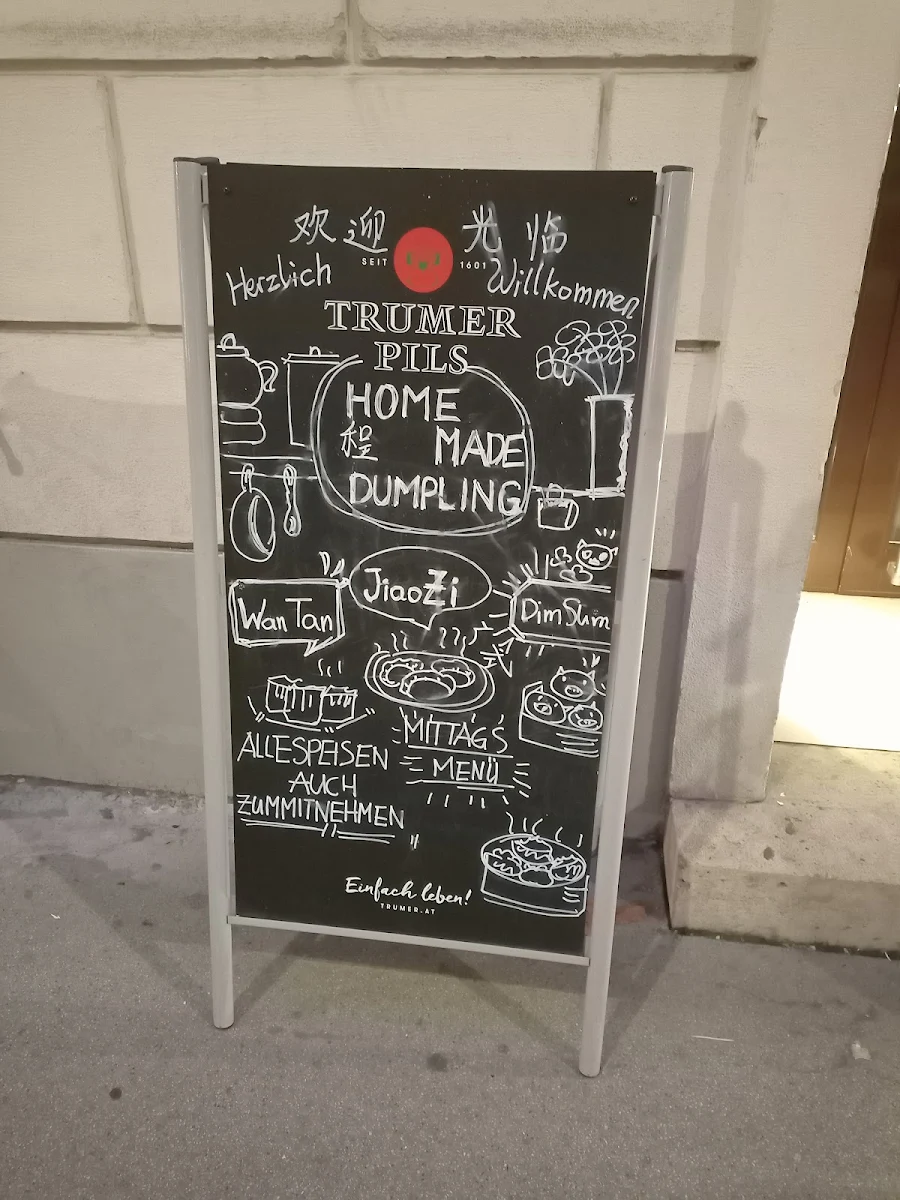 欢迎 光临
SEIT 1601
Herzlich Willkommen
TRUMER
PILS
HOME
程 MADE
DUMPLING
JiaoZi
Wan Tan
Dim Sum
ALLE SPEISEN
AUCH
ZUM MITNEHMEN
MITTAGS
MENÜ
Einfach leben!
TRUMER.AT